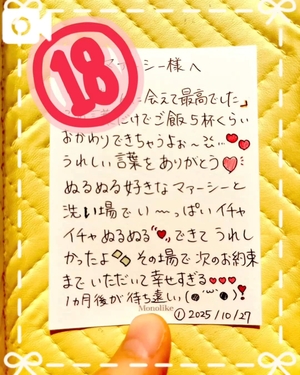 18
シー様へ
に会えて最高でした」
けでご飯5杯くらい
おかわりできちゃうよぉ〜
うれしい言葉をありがとう
ぬるぬる好きなマァーシーと
洗い場でい〜っぱいイチャ
イチャぬるぬる"♥"できて うれし
かったよ その場で次のお約束
まで いただいて幸せすぎる♥♥♥
1ヵ月後が待ち遠しい
Monolike
① 2025/10/27